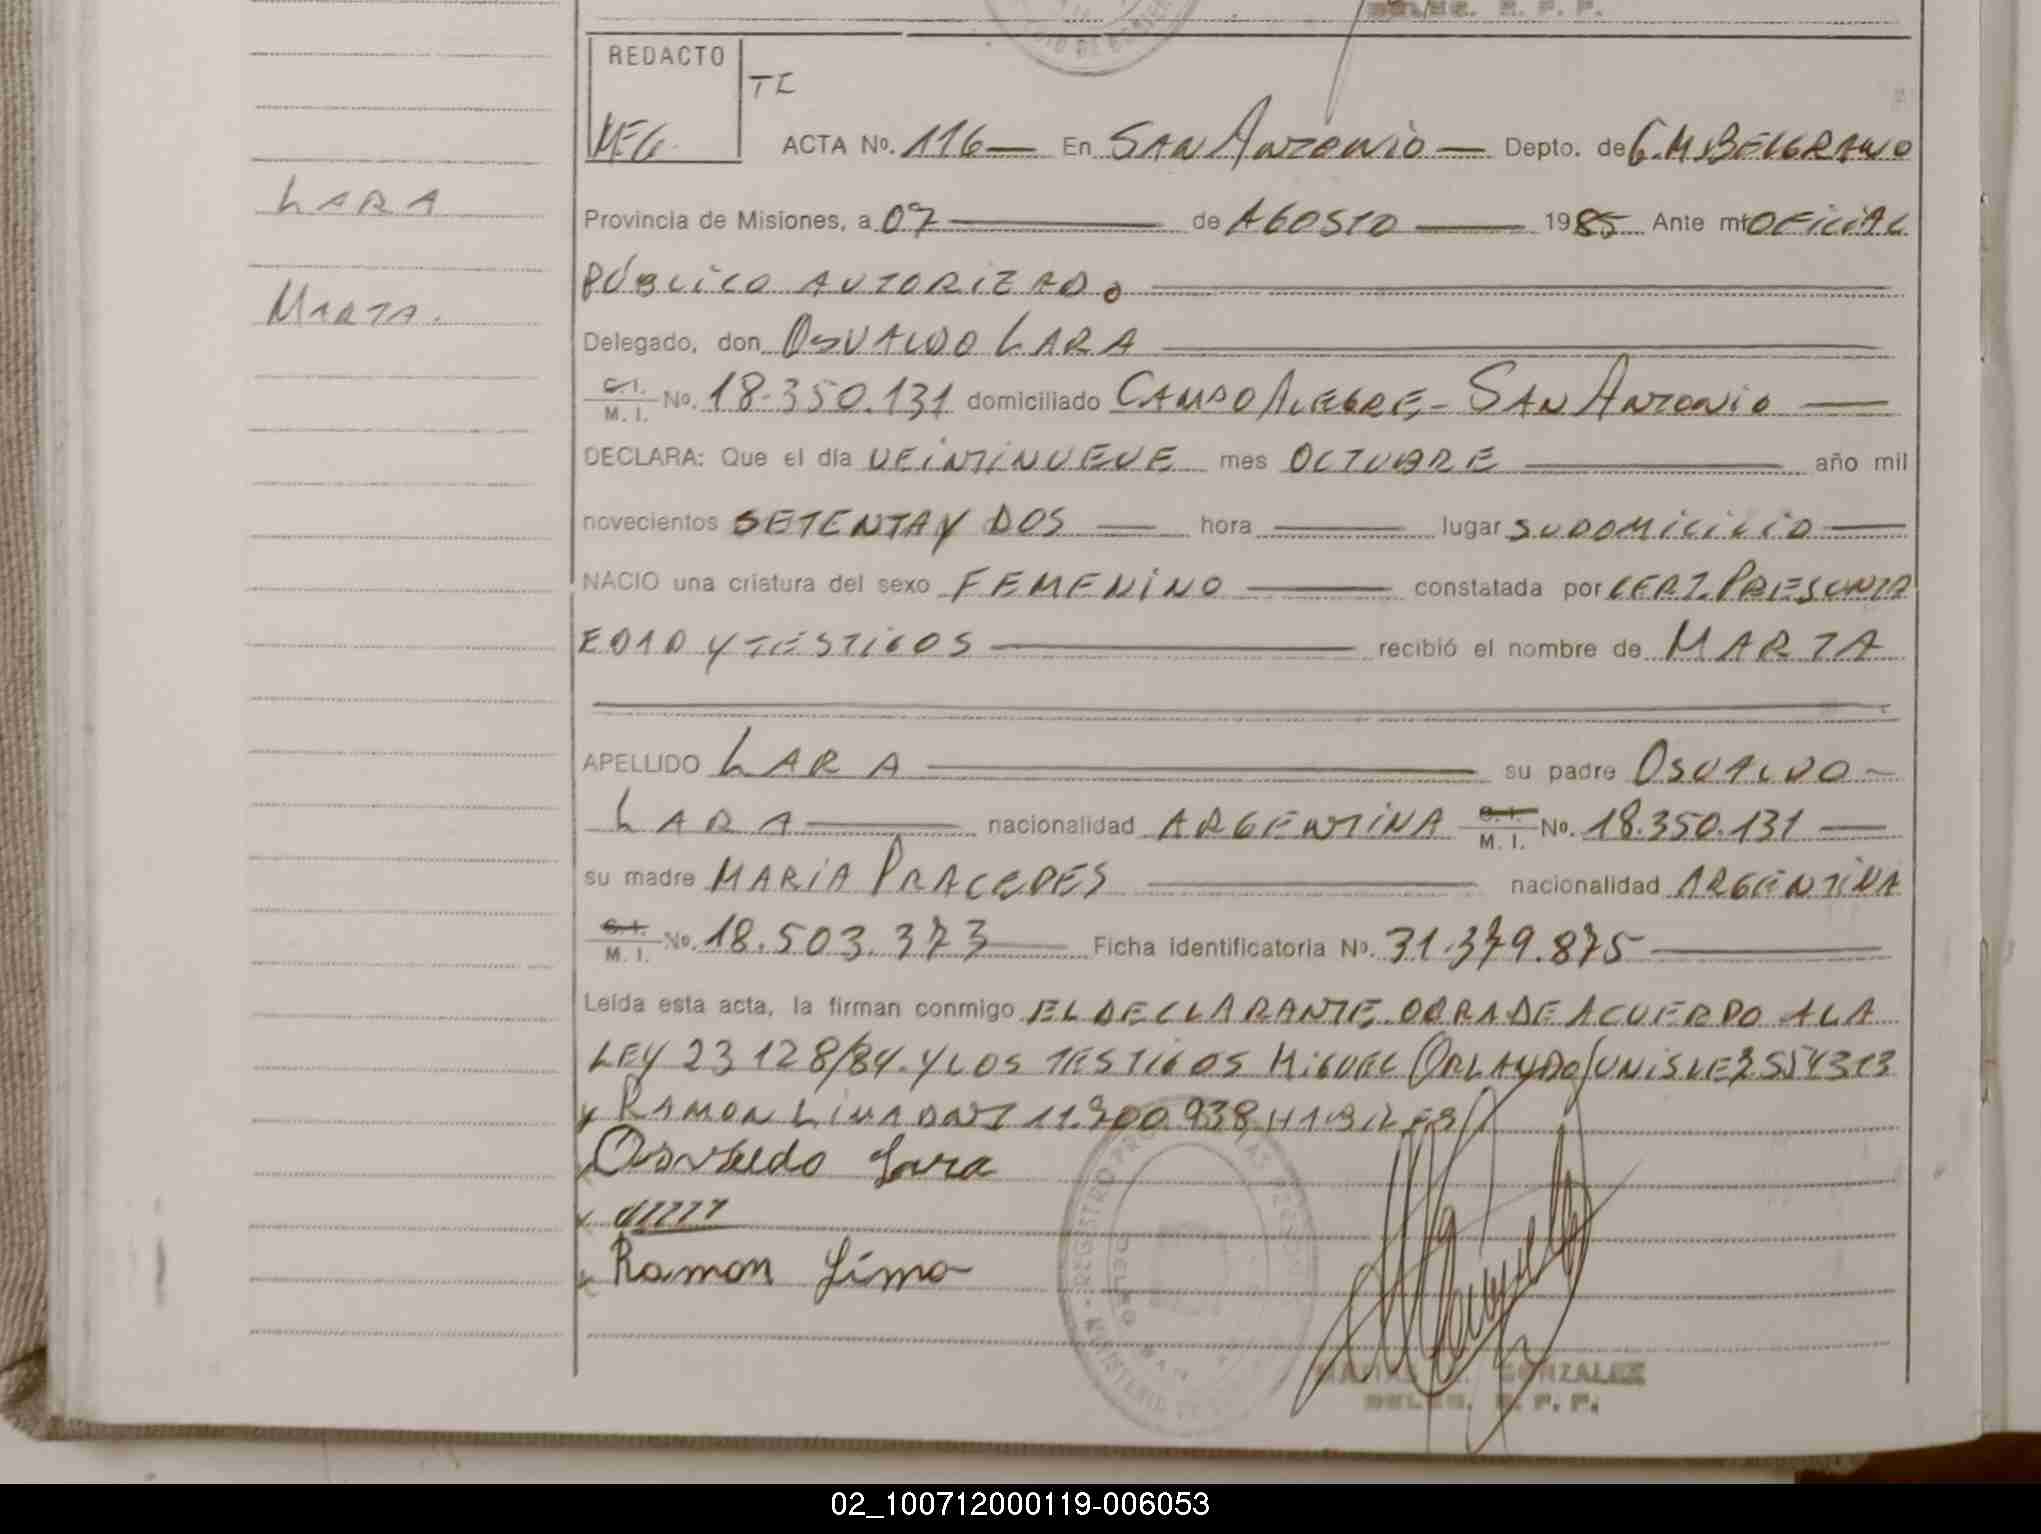 DELEG. R. P. P.
REDACTO
TI
MEG.
ACTA No. 116 En SAN ANTONIO Depto. de G.M. BELGRANO
LARA
Provincia de Misiones, a 07 de AGOSTO 1985 Ante mi OFICIAL
PÚBLICO AUTORIZADO
MARTA.
Delegado, don OSVALDO LARA
C. I. M. I. No. 18.350.131 domiciliado CAMPO ALEGRE - SAN ANTONIO
DECLARA: Que el día VEINTINUEVE mes OCTUBRE año mil
novecientos SETENTA Y DOS hora lugar SU DOMICILIO
NACIO una criatura del sexo FEMENINO constatada por CERT. PRESUNTA
EDAD Y TESTIGOS recibió el nombre de MARTA
APELLIDO LARA su padre OSVALDO
LARA nacionalidad ARGENTINA C. I. M. I. No. 18.350.131
su madre MARIA PRACEDES nacionalidad ARGENTINA
C. I. M. I. No. 18.503.373 Ficha identificatoria No. 31.379.875
Leída esta acta, la firman conmigo EL DECLARANTE OBRA DE ACUERDO A LA
LEY 23128/84. Y LOS TESTIGOS MIGUEL ORLANDO
Y RAMON LIMA DNI 11.900.938 HABILES
Osvaldo Lara
Ramon Lima
REGISTRO
GONZALEZ
DELEG. R. P. P.
02_100712000119-006053